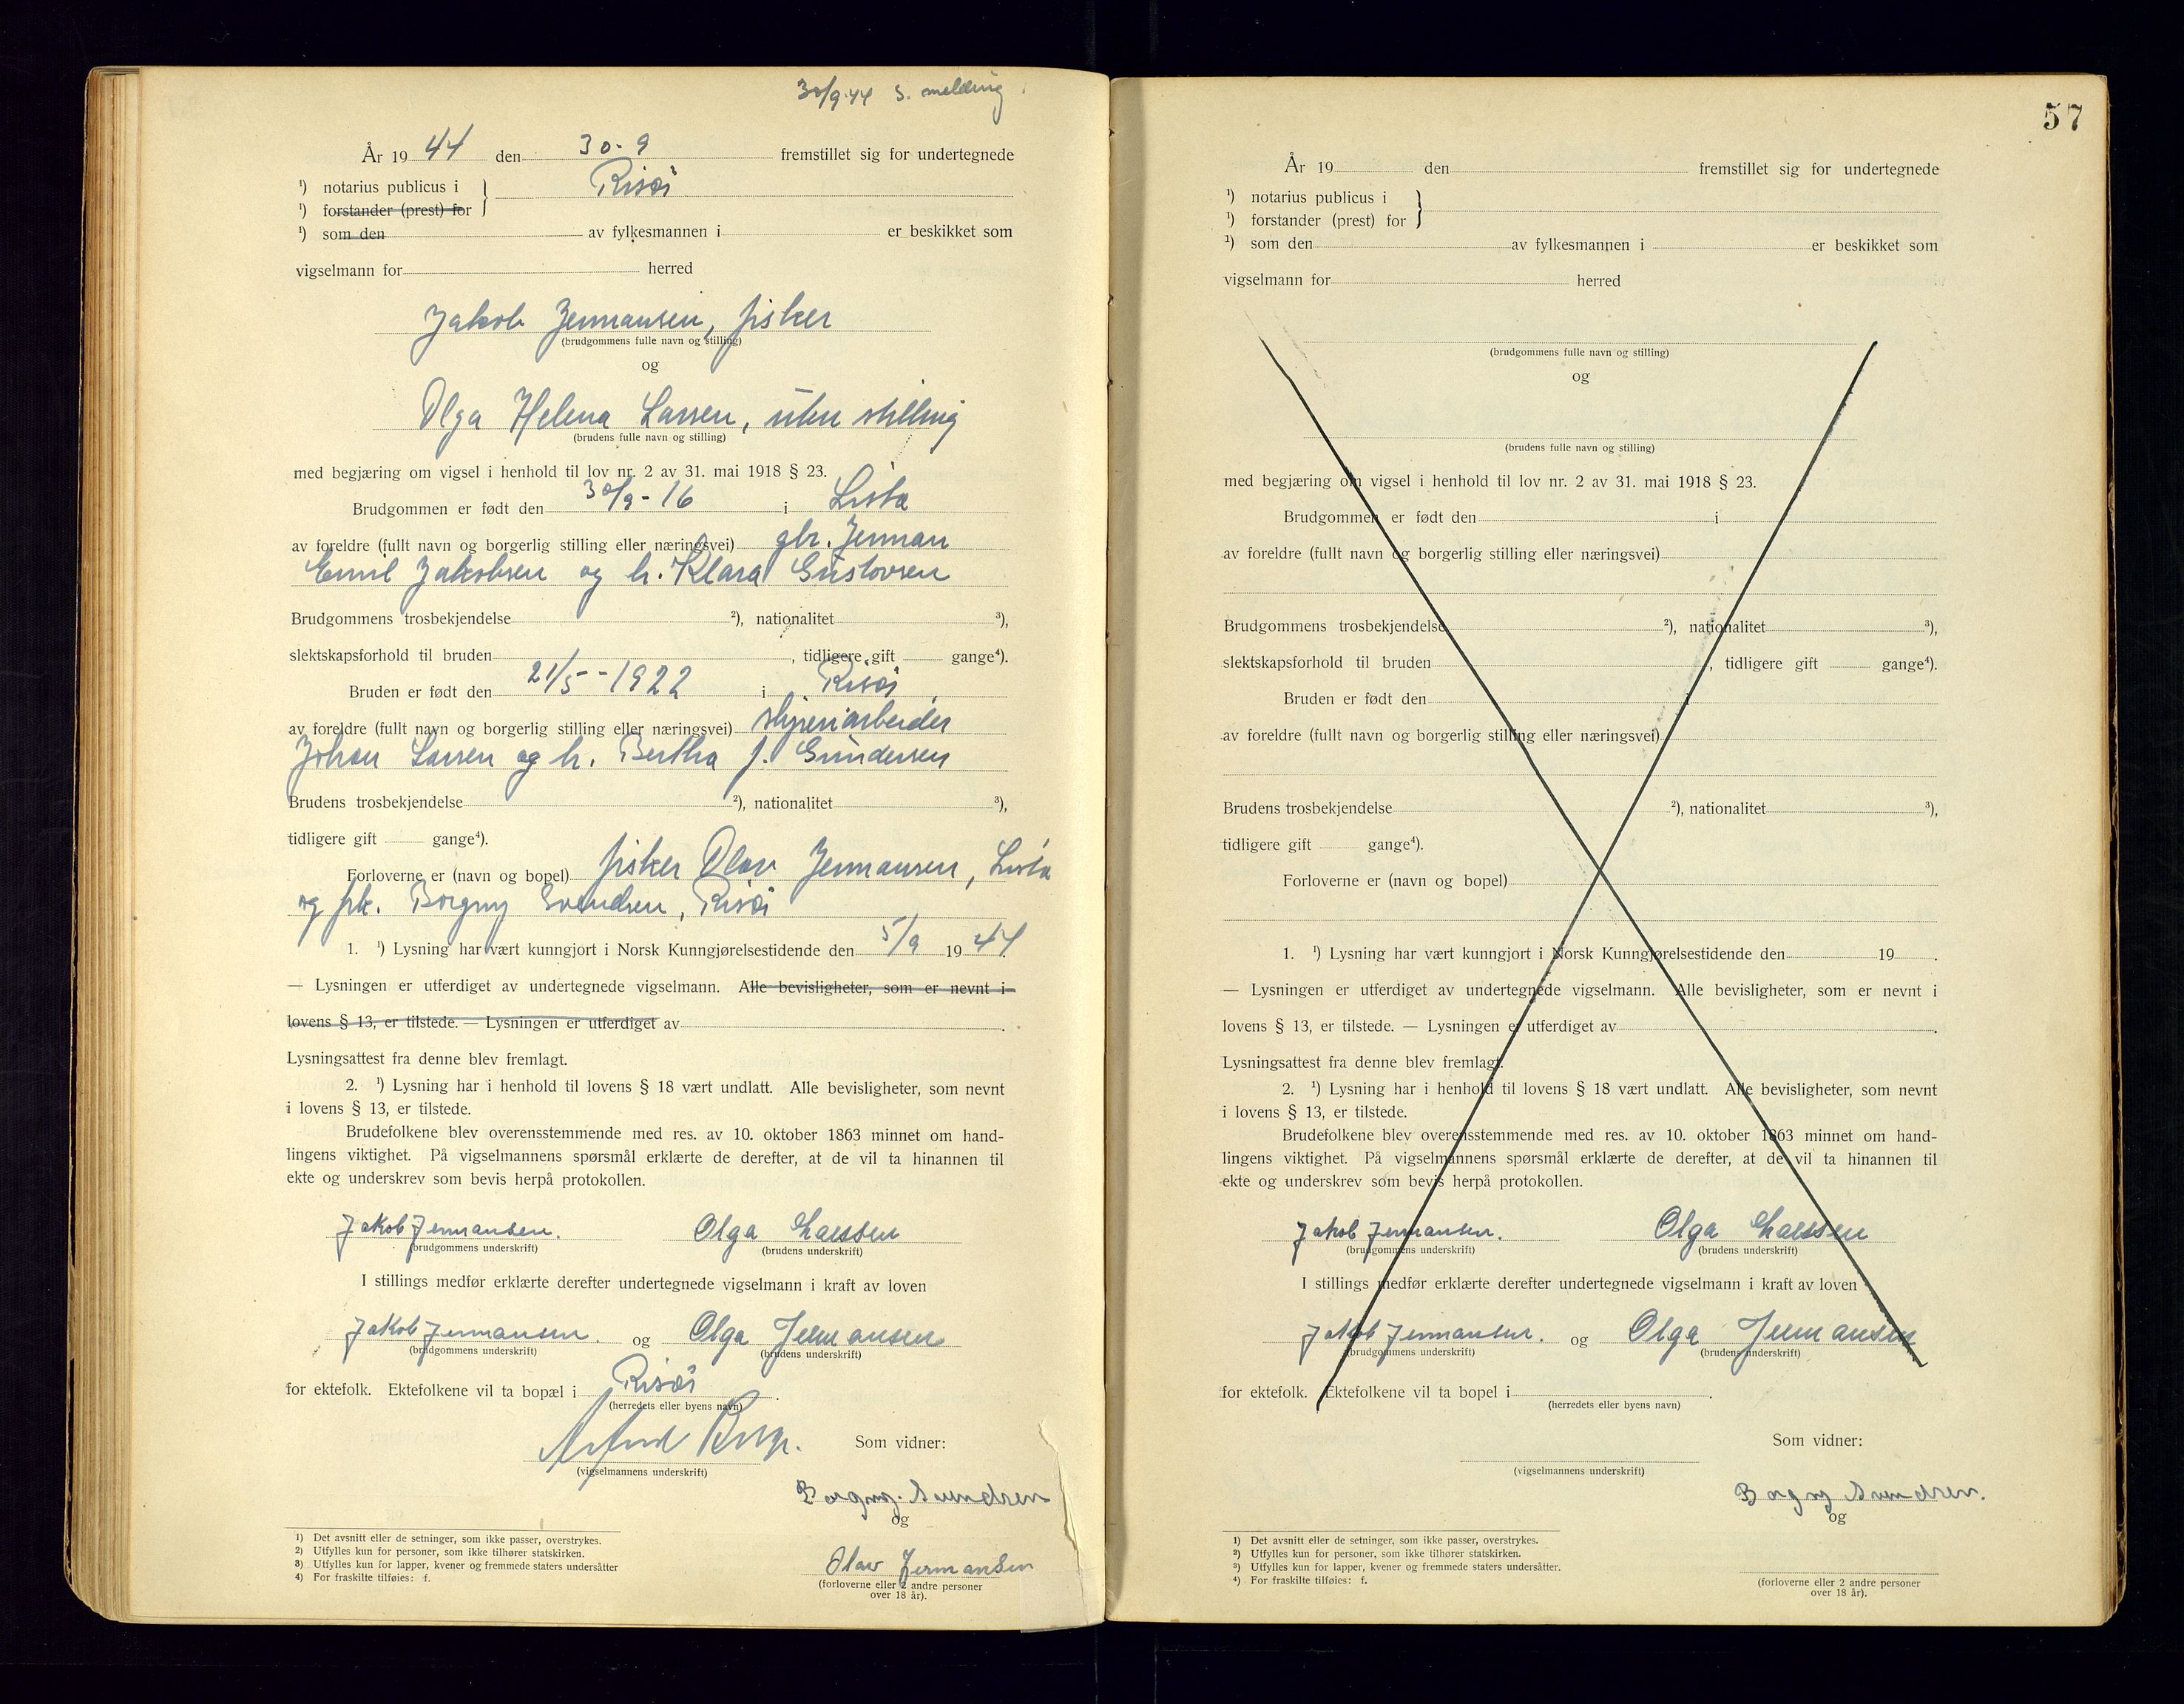 30/9.44 s. melding
År 19 44 den 30-9 fremstillet sig for undertegnede
¹) notarius publicus i } Risør
¹) forstander (prest) for
¹) som den av fylkesmannen i er beskikket som
vigselmann for herred
Jakob Jermansen, fisker
(brudgommens fulle navn og stilling)
og
Olga Helena Larsen, uten stilling
(brudens fulle navn og stilling)
med begjæring om vigsel i henhold til lov nr. 2 av 31. mai 1918 § 23.
Brudgommen er født den 30/9-16 i Lista
av foreldre (fullt navn og borgerlig stilling eller næringsvei) gbr. Jerman
Emil Jakobsen og h. Klara Gustovsen
Brudgommens trosbekjendelse ²), nationalitet ³),
slektskapsforhold til bruden , tidligere gift gange⁴).
Bruden er født den 21/5-1922 i Risør
av foreldre (fullt navn og borgerlig stilling eller næringsvei) sliperiarbeider
Johan Larsen og h. Bertha f. Gundersen
Brudens trosbekjendelse ²), nationalitet ³),
tidligere gift gange⁴).
Forloverne er (navn og bopel) fisker Olav Jermansen, Lista
og frk. Borgny Svendsen, Risør
1. ¹) Lysning har vært kunngjort i Norsk Kunngjørelsestidende den 5/9 19 44.
— Lysningen er utferdiget av undertegnede vigselmann. Alle bevisligheter, som er nevnt i
lovens § 13, er tilstede. — Lysningen er utferdiget av .
Lysningsattest fra denne blev fremlagt.
2. ¹) Lysning har i henhold til lovens § 18 vært undlatt. Alle bevisligheter, som nevnt
i lovens § 13, er tilstede.
Brudefolkene blev overensstemmende med res. av 10. oktober 1863 minnet om hand-
lingens viktighet. På vigselmannens spørsmål erklærte de derefter, at de vil ta hinannen til
ekte og underskrev som bevis herpå protokollen.
Jakob Jermansen. Olga Larssen
(brudgommens underskrift) (brudens underskrift)
I stillings medfør erklærte derefter undertegnede vigselmann i kraft av loven
Jakob Jermansen. og Olga Jermansen
(brudgommens underskrift) (brudens underskrift)
for ektefolk. Ektefolkene vil ta bopæl i Risør .
(herredets eller byens navn)
Som vidner:
(vigselmannens underskrift)
Borgny. Svendsen
og
Olav Jermansen
(forloverne eller 2 andre personer
over 18 år).
1) Det avsnitt eller de setninger, som ikke passer, overstrykes.
2) Utfylles kun for personer, som ikke tilhører statskirken.
3) Utfylles kun for lapper, kvener og fremmede staters undersåtter
4) For fraskilte tilføies: f.
57
År 19 den fremstillet sig for undertegnede
¹) notarius publicus i }
¹) forstander (prest) for
¹) som den av fylkesmannen i er beskikket som
vigselmann for herred
(brudgommens fulle navn og stilling)
og
(brudens fulle navn og stilling)
med begjæring om vigsel i henhold til lov nr. 2 av 31. mai 1918 § 23.
Brudgommen er født den i
av foreldre (fullt navn og borgerlig stilling eller næringsvei)
Brudgommens trosbekjendelse ²), nationalitet ³),
slektskapsforhold til bruden , tidligere gift gange⁴).
Bruden er født den i
av foreldre (fullt navn og borgerlig stilling eller næringsvei)
Brudens trosbekjendelse ²), nationalitet ³),
tidligere gift gange⁴).
Forloverne er (navn og bopel)
1. ¹) Lysning har vært kunngjort i Norsk Kunngjørelsestidende den 19 .
— Lysningen er utferdiget av undertegnede vigselmann. Alle bevisligheter, som er nevnt i
lovens § 13, er tilstede. — Lysningen er utferdiget av .
Lysningsattest fra denne blev fremlagt.
2. ¹) Lysning har i henhold til lovens § 18 vært undlatt. Alle bevisligheter, som nevnt
i lovens § 13, er tilstede.
Brudefolkene blev overensstemmende med res. av 10. oktober 1863 minnet om hand-
lingens viktighet. På vigselmannens spørsmål erklærte de derefter, at de vil ta hinannen til
ekte og underskrev som bevis herpå protokollen.
Jakob Jermansen. Olga Larssen
(brudgommens underskrift) (brudens underskrift)
I stillings medfør erklærte derefter undertegnede vigselmann i kraft av loven
Jakob Jermansen. og Olga Jermansen
(brudgommens underskrift) (brudens underskrift)
for ektefolk. Ektefolkene vil ta bopel i .
(herredets eller byens navn)
Som vidner:
(vigselmannens underskrift)
Borgny Svendsen.
og
(forloverne eller 2 andre personer
over 18 år).
1) Det avsnitt eller de setninger, som ikke passer, overstrykes.
2) Utfylles kun for personer, som ikke tilhører statskirken.
3) Utfylles kun for lapper, kvener og fremmede staters undersåtter.
4) For fraskilte tilføies: f.